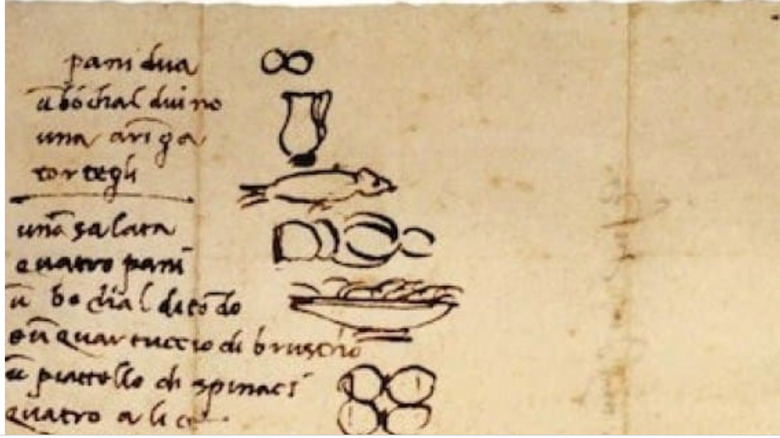 pani dua
ū bóchal duino
una aringa
tortegli
una salata
quatro pani
ū bochal ditōdo
e ū quartuccio di bruscho
ū piattello di spinaci
quatro alice